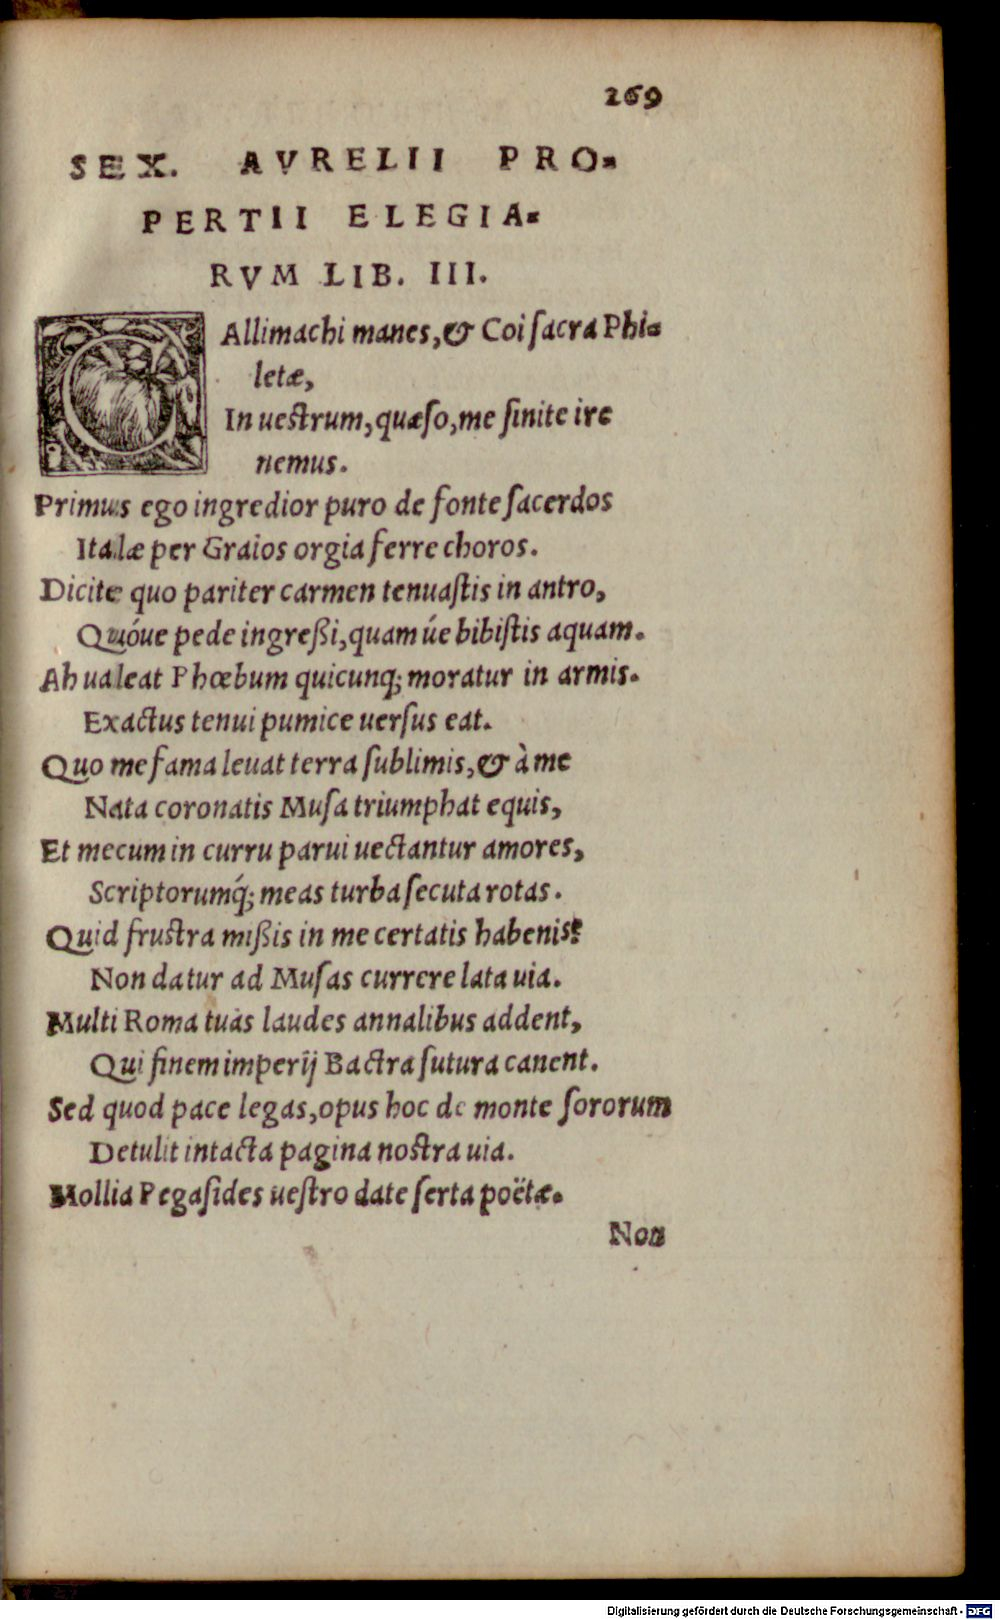 269
SEX. AVRELII PRO-
PERTII ELEGIA-
RVM LIB. III.
CAllimachi manes, & Coi sacra Phi-
letæ,
In uestrum, quæso, me sinite ire
nemus.
Primus ego ingredior puro de fonte sacerdos
Italæ per Graios orgia ferre choros.
Dicite quo pariter carmen tenuastis in antro,
Quóue pede ingreßi, quam úe bibistis aquam.
Ah ualeat Phœbum quicunq; moratur in armis.
Exactus tenui pumice uersus eat.
Quo me fama leuat terra sublimis, & à me
Nata coronatis Musa triumphat equis,
Et mecum in curru parui uectantur amores,
Scriptorumq́; meas turba secuta rotas.
Quid frustra mißis in me certatis habenis?
Non datur ad Musas currere lata uia.
Multi Roma tuas laudes annalibus addent,
Qui finem imperij Bactra futura canent.
Sed quod pace legas, opus hoc de monte sororum
Detulit intacta pagina nostra uia.
Mollia Pegasides uestro date serta poëtæ.
Non
Digitalisierung gefördert durch die Deutsche Forschungsgemeinschaft - DFG